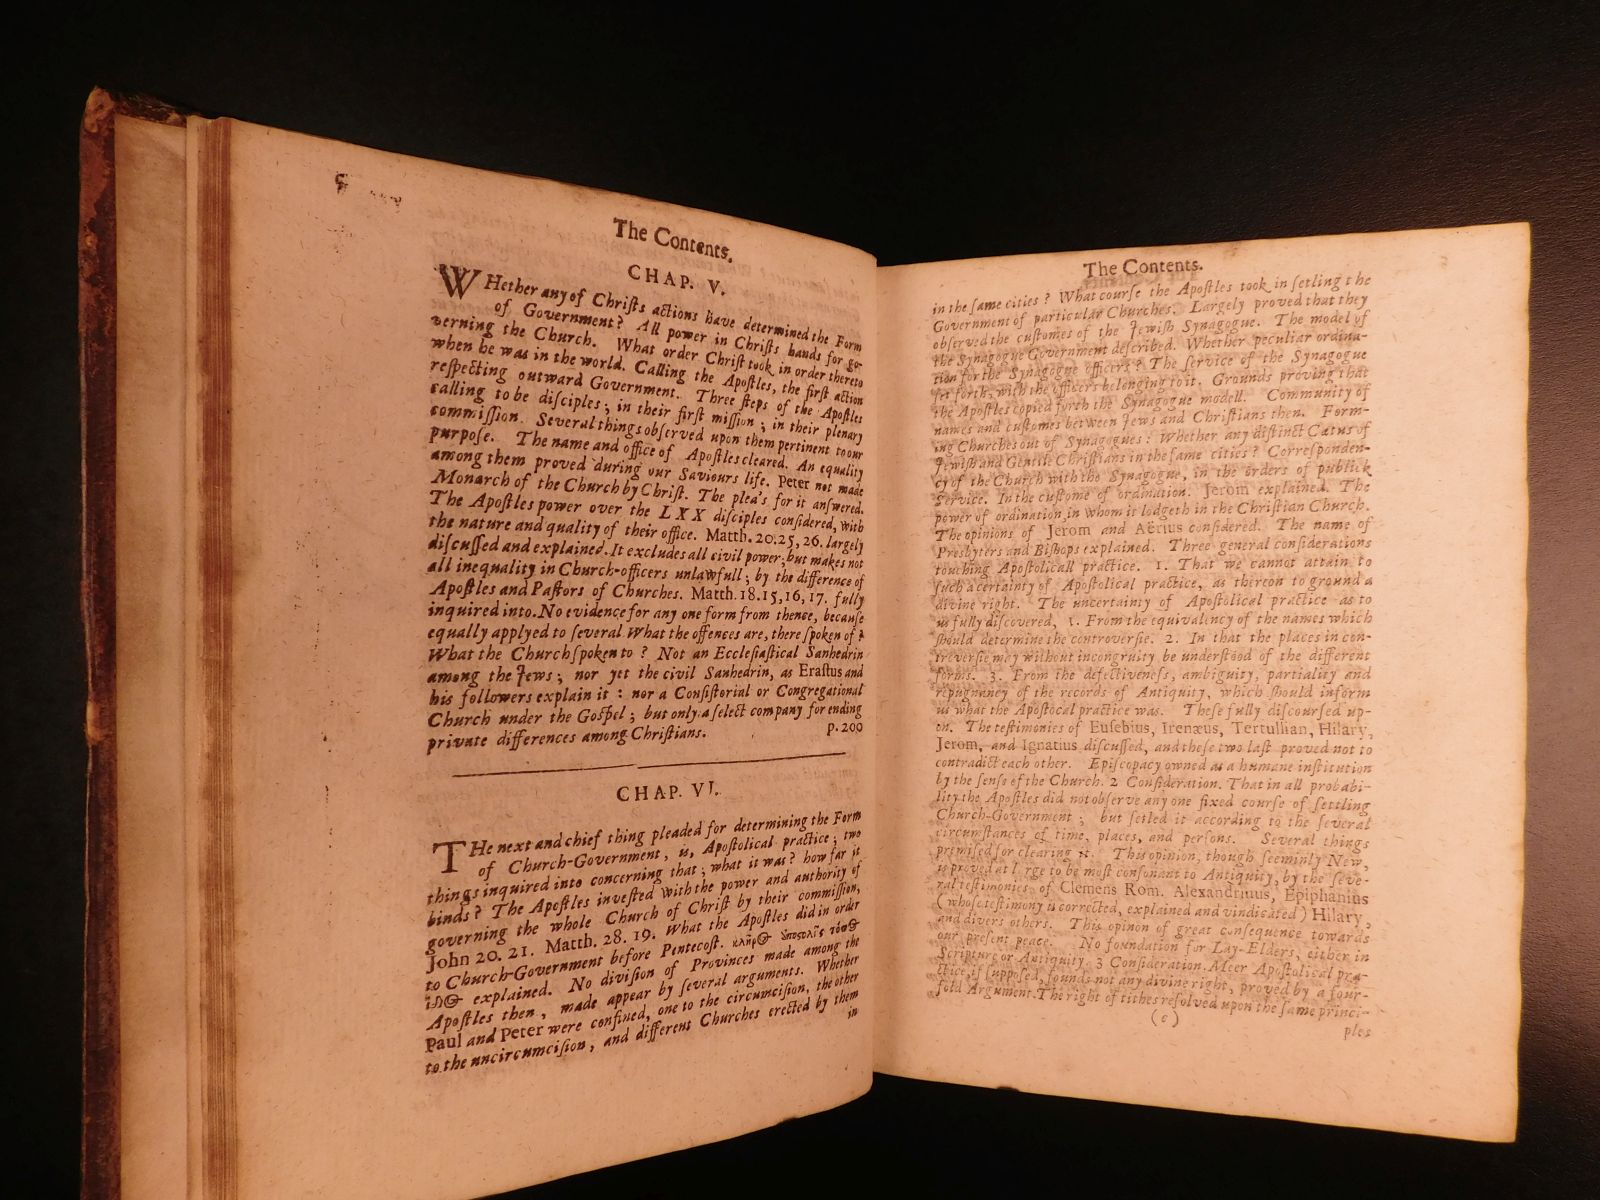 The Contents.
CHAP. V.
WHether any of Chriſts actions have determined the Form
of Government? All power in Chriſts hands for go-
verning the Church. What order Chriſt took in order thereto
when he was in the world. Calling the Apoſtles, the firſt action
reſpecting outward Government. Three ſteps of the Apoſtles
calling to be diſciples; in their firſt miſſion; in their plenary
commiſſion. Several things obſerved upon them pertinent to our
purpoſe. The name and office of Apoſtles cleared. An equality
among them proved during our Saviours life. Peter not made
Monarch of the Church by Chriſt. The plea's for it anſwered.
The Apoſtles power over the LXX diſciples conſidered, with
the nature and quality of their office. Matth. 20.25, 26. largely
diſcuſſed and explained. It excludes all civil power; but makes not
all inequality in Church-officers unlawfull; by the difference of
Apoſtles and Paſtors of Churches. Matth. 18.15,16,17. fully
inquired into. No evidence for any one form from thence, becauſe
equally applyed to ſeveral What the offences are, there ſpoken of?
What the Church ſpoken to? Not an Eccleſiaſtical Sanhedrin
among the Jews; nor yet the civil Sanhedrin, as Eraſtus and
his followers explain it: nor a Conſiſtorial or Congregational
Church under the Goſpel; but only a ſelect company for ending
private differences among Chriſtians. p.200
CHAP. VI.
THe next and chief thing pleaded for determining the Form
of Church-Government, is, Apoſtolical practice; two
things inquired into concerning that; what it was? how far it
binds? The Apoſtles inveſted with the power and authority of
governing the whole Church of Chriſt by their commiſſion,
John 20. 21. Matth. 28. 19. What the Apoſtles did in order
to Church-Government before Pentecoſt.
explained. No diviſion of Provinces made among the
Apoſtles then, made appear by ſeveral arguments. Whether
Paul and Peter were confined, one to the circumciſion, the other
to the uncircumciſion, and different Churches erected by them
in
The Contents.
in the ſame cities? What courſe the Apoſtles took in ſetling the
Government of particular Churches. Largely proved that they
obſerved the cuſtomes of the Jewiſh Synagogue. The model of
the Synagogue Government deſcribed. Whether peculiar ordina-
tion for the Synagogue officers? The ſervice of the Synagogue
ſet forth, with the officers belonging to it. Grounds proving that
the Apoſtles copied forth the Synagogue modell. Community of
names and cuſtomes between Jews and Chriſtians then. Form-
ing Churches out of Synagogues: Whether any diſtinct Cœtus of
Jewiſh and Gentile Chriſtians in the ſame cities? Correſponden-
cy of the Church with the Synagogue, in the orders of publick
ſervice. In the cuſtome of ordination. Jerom explained. The
power of ordination, in whom it lodgeth in the Chriſtian Church.
The opinions of Jerom and Aërius conſidered. The name of
Presbyters and Biſhops explained. Three general conſiderations
touching Apoſtolicall practice. 1. That we cannot attain to
ſuch a certainty of Apoſtolical practice, as thereon to ground a
divine right. The uncertainty of Apoſtolical practice as to
us fully diſcovered, 1. From the equivalency of the names which
ſhould determine the controverſie. 2. In that the places in con-
troverſie may without incongruity be underſtood of the different
forms. 3. From the defectiveneſs, ambiguity, partiality and
repugnancy of the records of Antiquity, which ſhould inform
us what the Apoſtocal practice was. Theſe fully diſcourſed up-
on. The teſtimonies of Euſebius, Irenæus, Tertullian, Hilary,
Jerom, and Ignatius diſcuſſed, and theſe two laſt proved not to
contradict each other. Epiſcopacy owned as a humane inſtitution
by the ſenſe of the Church. 2 Conſideration. That in all probabi-
lity the Apoſtles did not obſerve any one fixed courſe of ſettling
Church-Government; but ſetled it according to the ſeveral
circumſtances of time, places, and perſons. Several things
premiſed for clearing it. This opinion, though ſeeminly New,
is proved at large to be moſt conſonant to Antiquity, by the ſeve-
ral teſtimonies of Clemens Rom. Alexandrinus, Epiphanius
(whoſe teſtimony is corrected, explained and vindicated) Hilary,
and divers others. This opinion of great conſequence towards
our preſent peace. No foundation for Lay-Elders, either in
Scripture or Antiquity. 3 Conſideration. Meer Apoſtolical pra-
ctice, if ſuppoſed, founds not any divine right, proved by a four-
fold Argument. The right of tithes reſolved upon the ſame princi-
(e)
ples